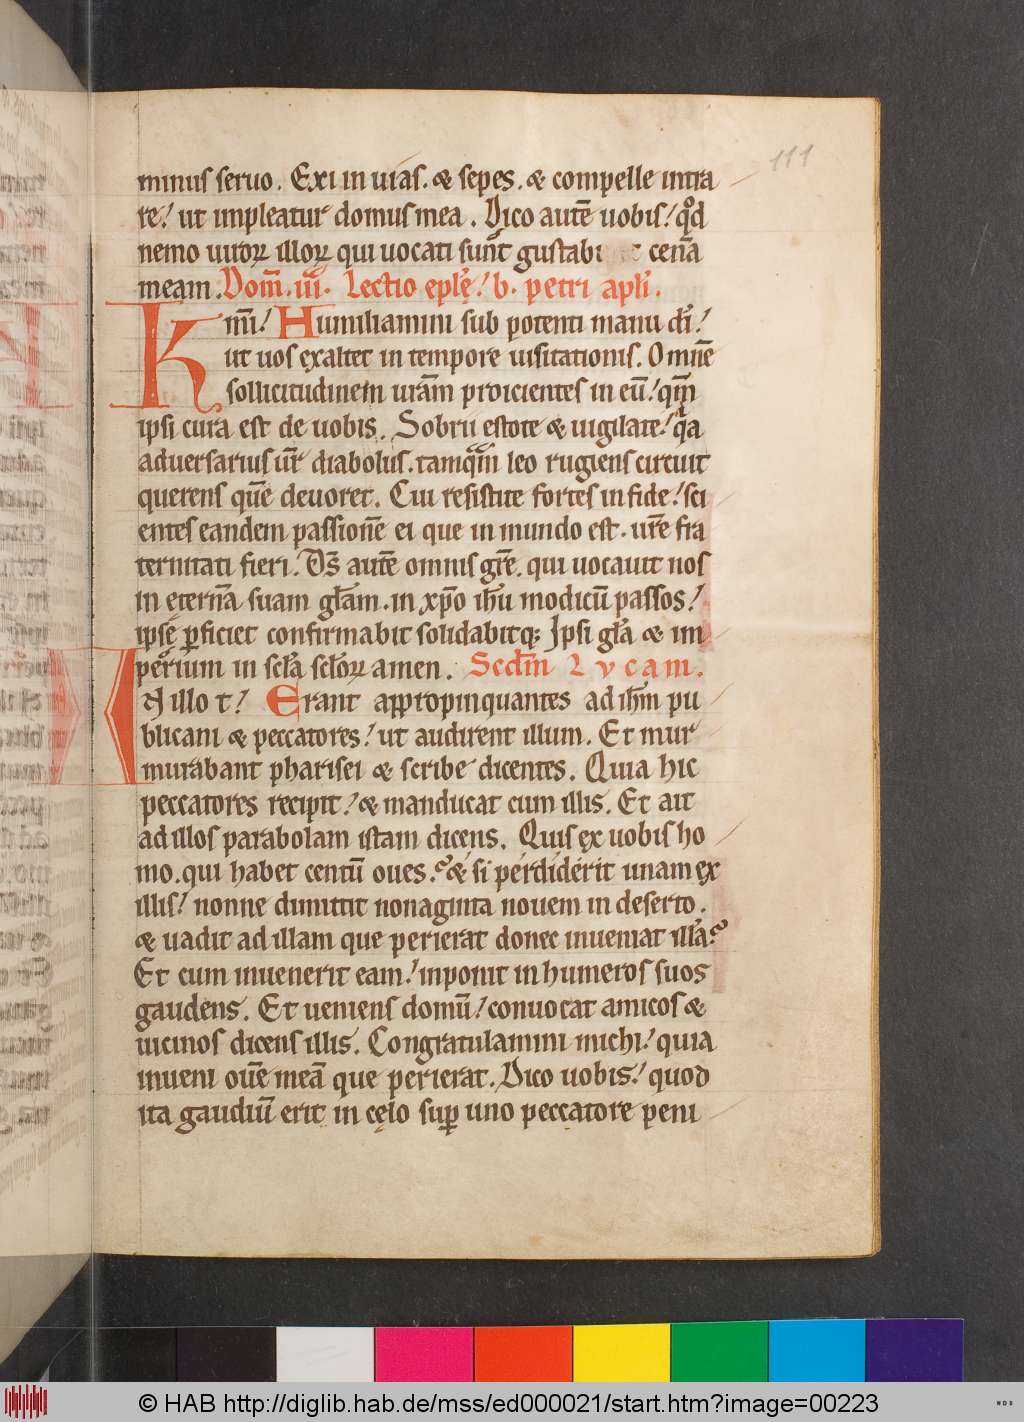 111
minus seruo. Exi in uias. & sepes. & compelle intra
re! ut impleatur domus mea. Dico autē uobis! qd
nemo uiroꝝ illoꝝ qui uocati sunt gustabi cenā
meam. Dom̄. iii. Lectio eplę! b. petri apli.
Kmi! Humiliamini sub potenti manu di!
ut uos exaltet in tempore uisitationis. Omnē
sollicitudinem urām proicientes in eū! qm̄
ipsi cura est de uobis. Sobrii estote & uigilate! qa
aduersarius ur̄ diabolus. tamqm̄ leo rugiens circuit
querens quē deuoret. Cui resistite fortes in fide! sci
entes eandem passionē ei que in mundo est. urē fra
ternitati fieri. Ds̄ autē omnis grē. qui uocauit nos
in eternā suam glām. in xp̄o ih̄u modicū passos!
ipsę ꝑficiet confirmabit solidabitq; Ipsi glā & im
perium in sclā scloꝝ amen. Scdm̄ Lvcam.
IN illo t! Erant appropinquantes ad ih̄m pu
blicani & peccatores! ut audirent illum. Et mur
murabant pharisei & scribe dicentes. Quia hic
peccatores recipit! & manducat cum illis. Et ait
ad illos parabolam istam dicens. Quis ex uobis ho
mo. qui habet centū oues. & si perdiderit unam ex
illis! nonne dimittit nonaginta nouem in deserto.
& uadit ad illam que perierat donec inueniat illā.
Et cum inuenerit eam! inponit in humeros suos
gaudens. Et ueniens domū! conuocat amicos &
uicinos dicens illis. Congratulamini michi! quia
inueni ouē meā que perierat. Dico uobis! quod
ita gaudiū erit in cęlo suꝑ uno peccatore peni
© HAB http://diglib.hab.de/mss/ed000021/start.htm?image=00223